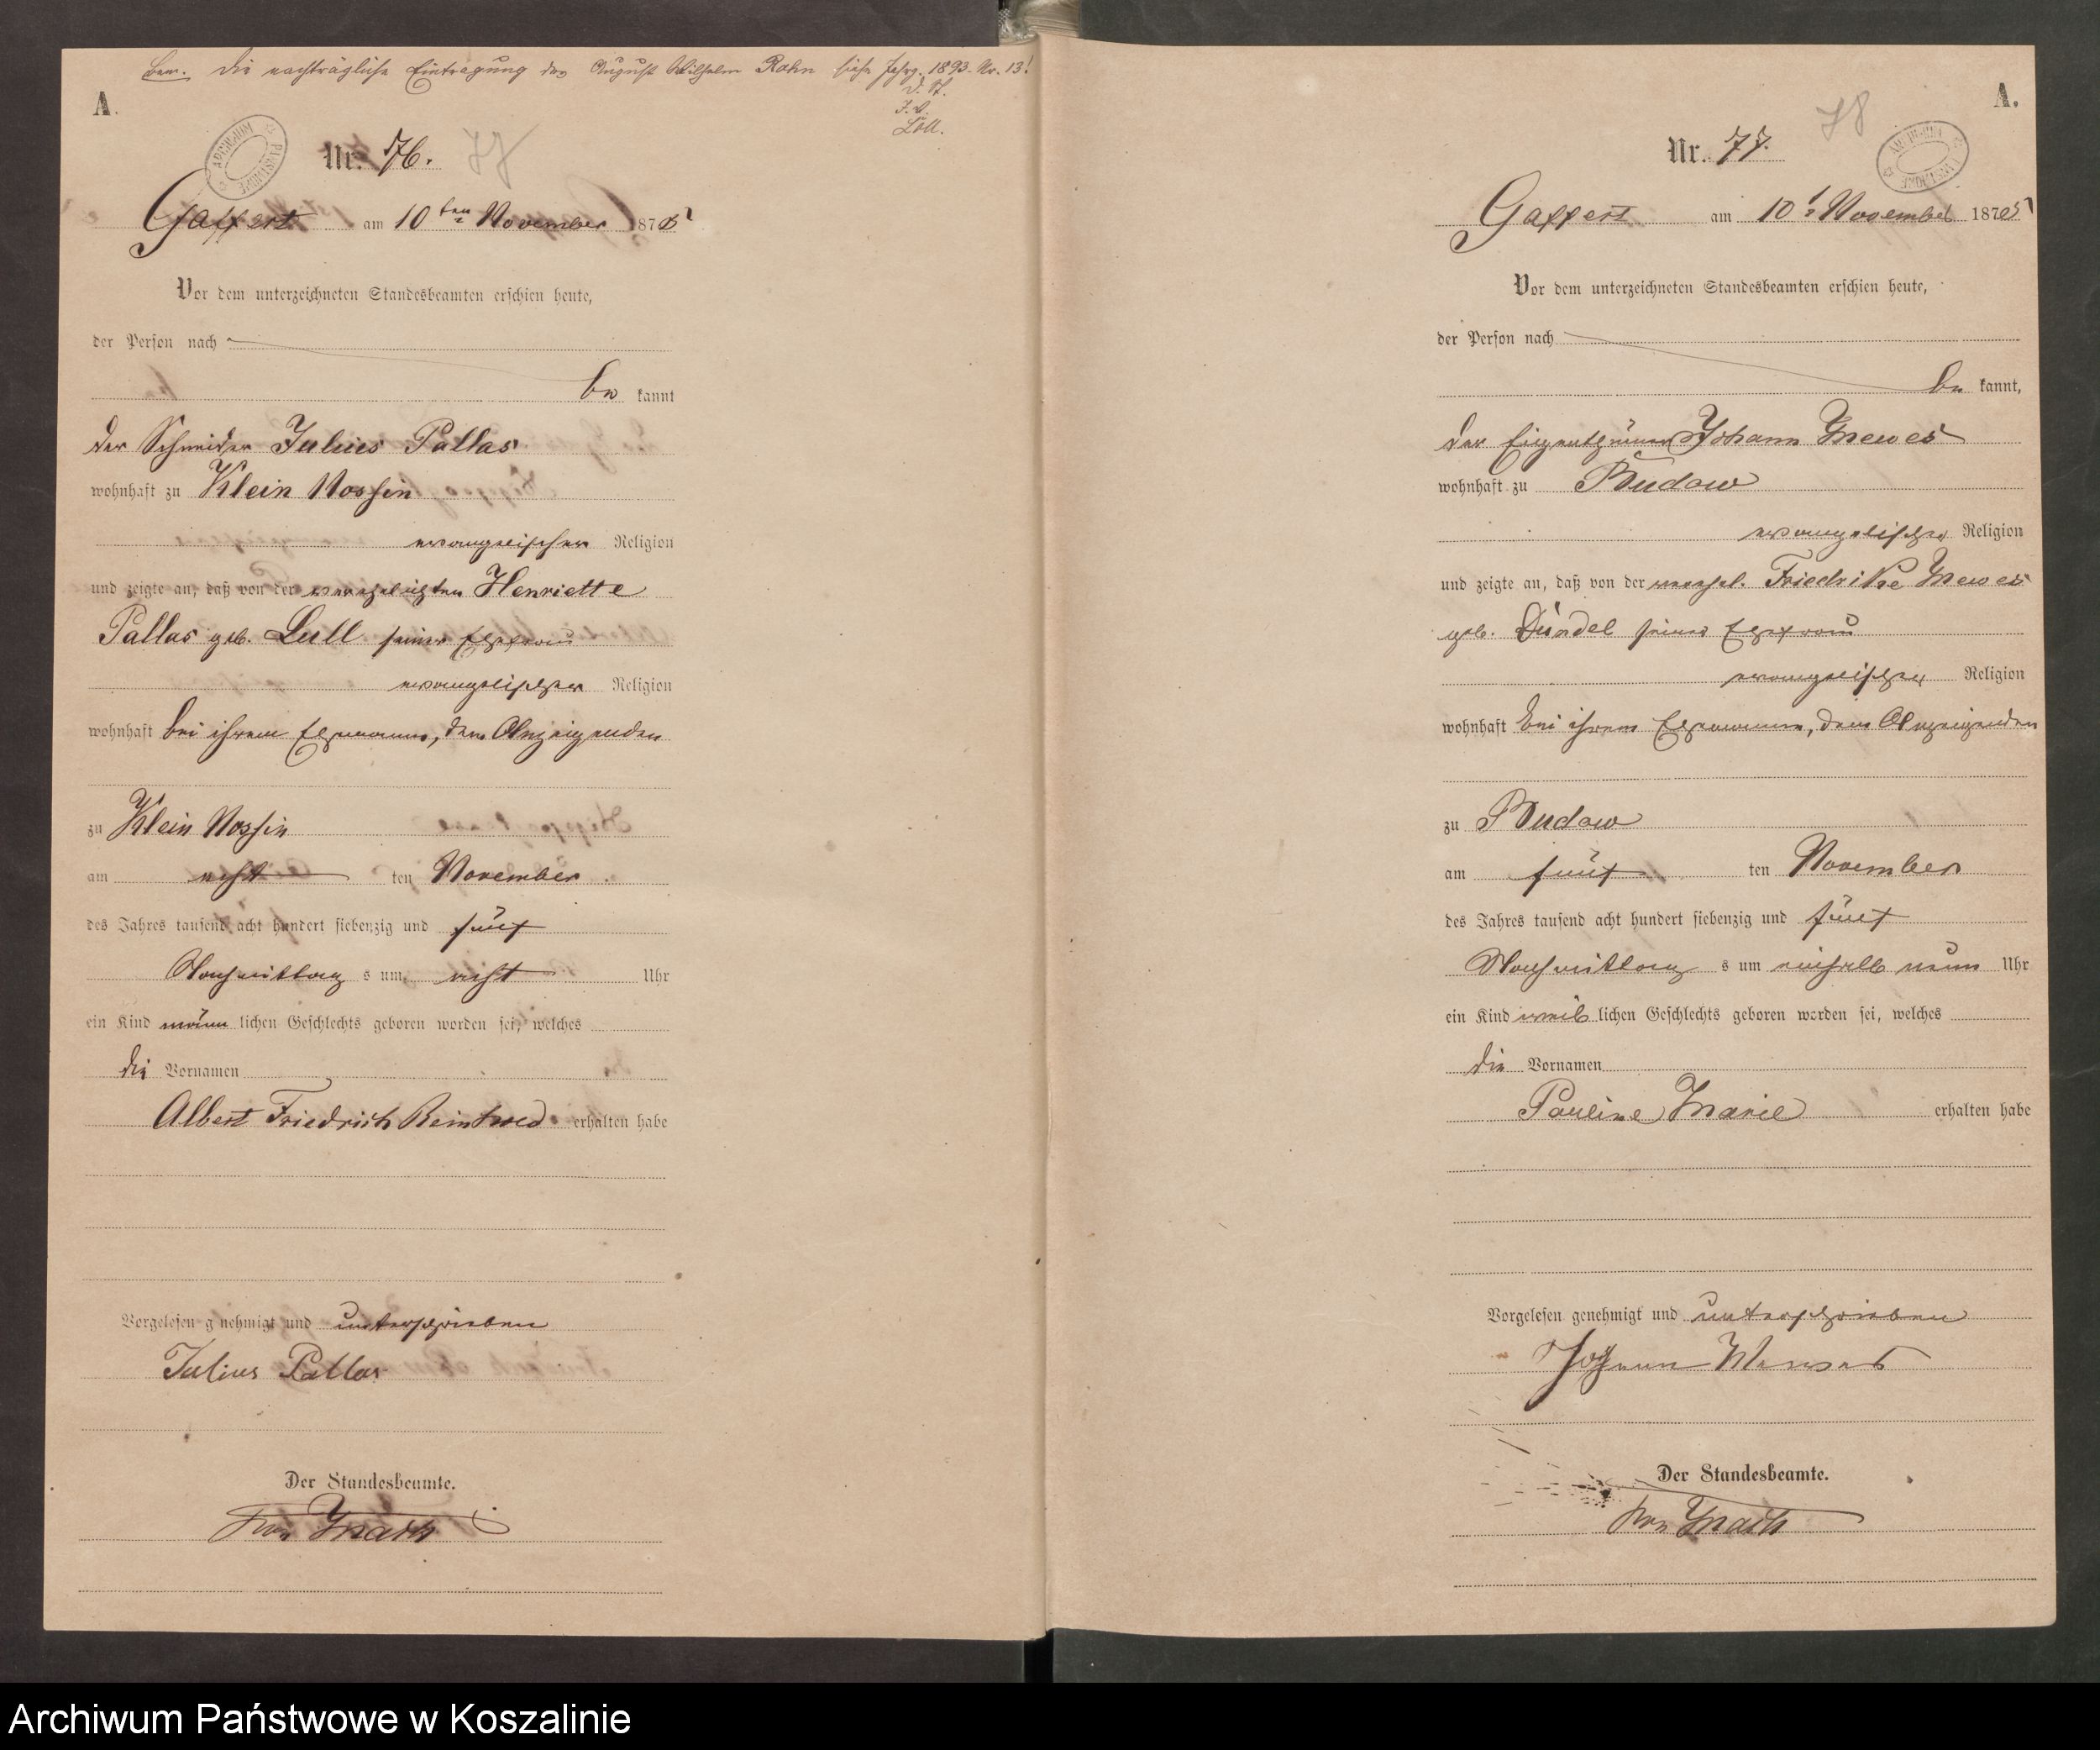 Bem. Die nachträgliche Eintragung des August Wilhelm Rahn siehe Jahrg. 1893 Nr. 13!
D. St.
J. V.
A.
Nr. 76. 77
Gaffert am 10ten November 1875
Vor dem unterzeichneten Standesbeamten erschien heute,
der Person nach
be kannt
der Schneider Julius Pallas
wohnhaft zu Klein Nossin
evangelischer Religion
und zeigte an, daß von der verehelichten Henriette
Pallas geb. Lull seiner Ehefrau
evangelischer Religion
wohnhaft bei ihrem Ehemanne, dem Anzeigenden
zu Klein Nossin
am acht ten November
des Jahres tausend acht hundert siebenzig und fünf
Nachmittag s um acht Uhr
ein Kind männ lichen Geschlechts geboren worden sei, welches
die Vornamen
Albert Friedrich Reinhold erhalten habe
Vorgelesen genehmigt und unterschrieben
Julius Pallas
Der Standesbeamte.
von
A.
Nr. 77. 78
Gaffert am 10t November 1875
Vor dem unterzeichneten Standesbeamten erschien heute,
der Person nach
be kannt,
der Eigenthümer Johann Mewes
wohnhaft zu Budow
evangelischer Religion
und zeigte an, daß von der verehel. Friedrike Mewes
geb. Dündel seiner Ehefrau
evangelischer Religion
wohnhaft bei ihrem Ehemanne, dem Anzeigenden
zu Budow
am fünf ten November
des Jahres tausend acht hundert siebenzig und fünf
Nachmittag s um einhalb neun Uhr
ein Kind weib lichen Geschlechts geboren worden sei, welches
die Vornamen
Pauline Marie erhalten habe
Vorgelesen genehmigt und unterschrieben
Johann Mewes
Der Standesbeamte.
von
Archiwum Państwowe w Koszalinie